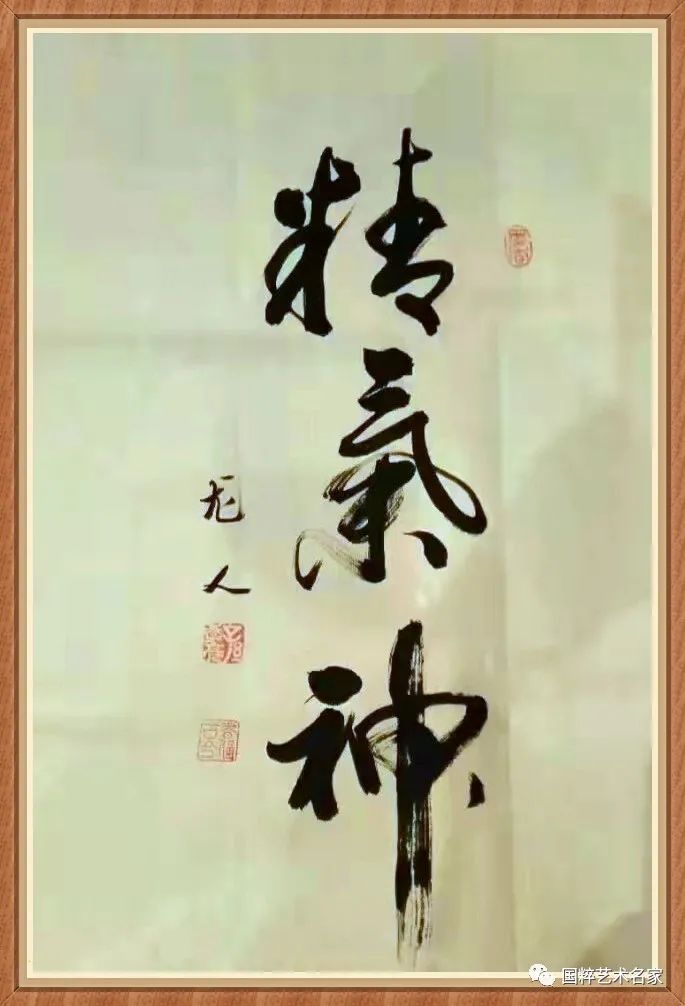 精氣神
尤人
国粹艺术名家